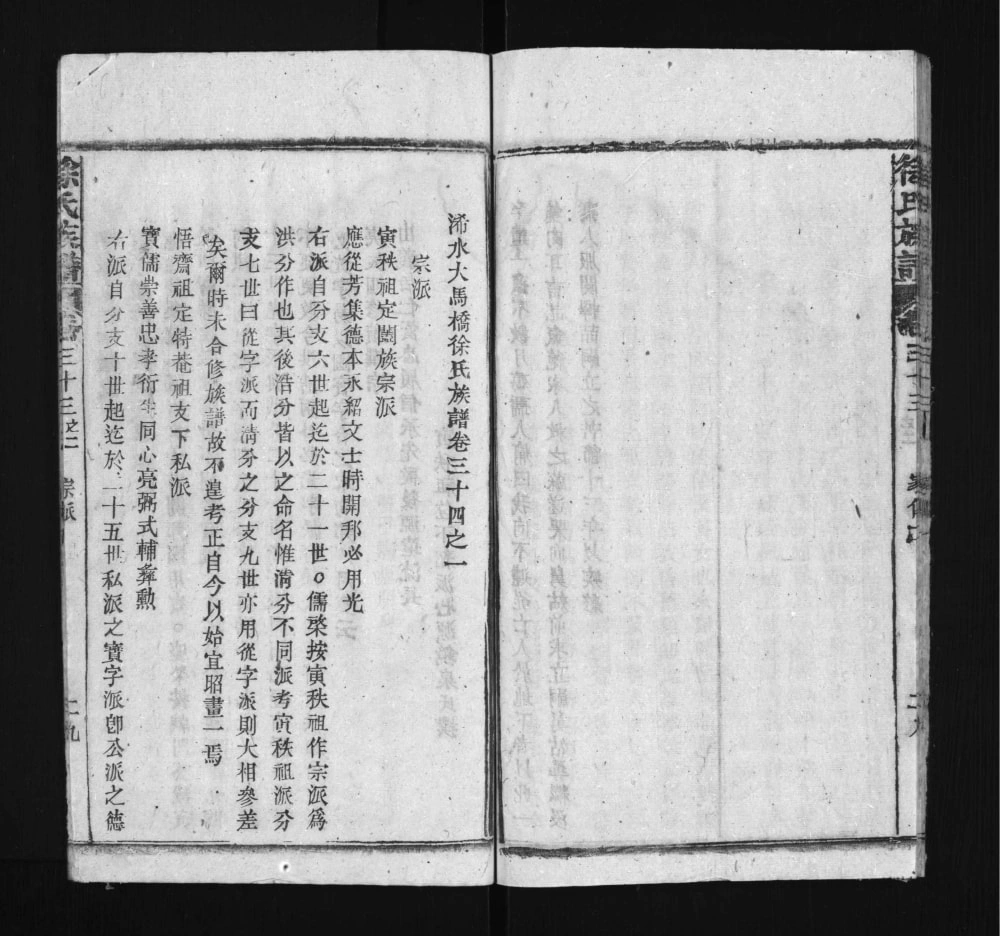 徐氏族譜
浠水大馬橋徐氏族譜卷三十四之一
宗派
寅秩祖定闔族宗派
應從芳集德本永紹文士時開邦必用光
右派自分支六世起迄於二十一世。儒棨按寅秩祖作宗派爲
洪分作也其後浩分皆以之命名惟淸分不同派考寅秩祖派分
支七世曰從字派而淸分之分支九世亦用從字派則大相參差
矣爾時未合修族譜故不遑考正自今以始宜昭畫一焉
悟齋祖定特菴祖支下私派
寶儒崇善忠孝衍生同心亮弼式輔彝勲
右派自分支十世起迄於二十五世私派之寶字派卽公派之德
徐氏族譜 卷三十三之二 宗派 二九